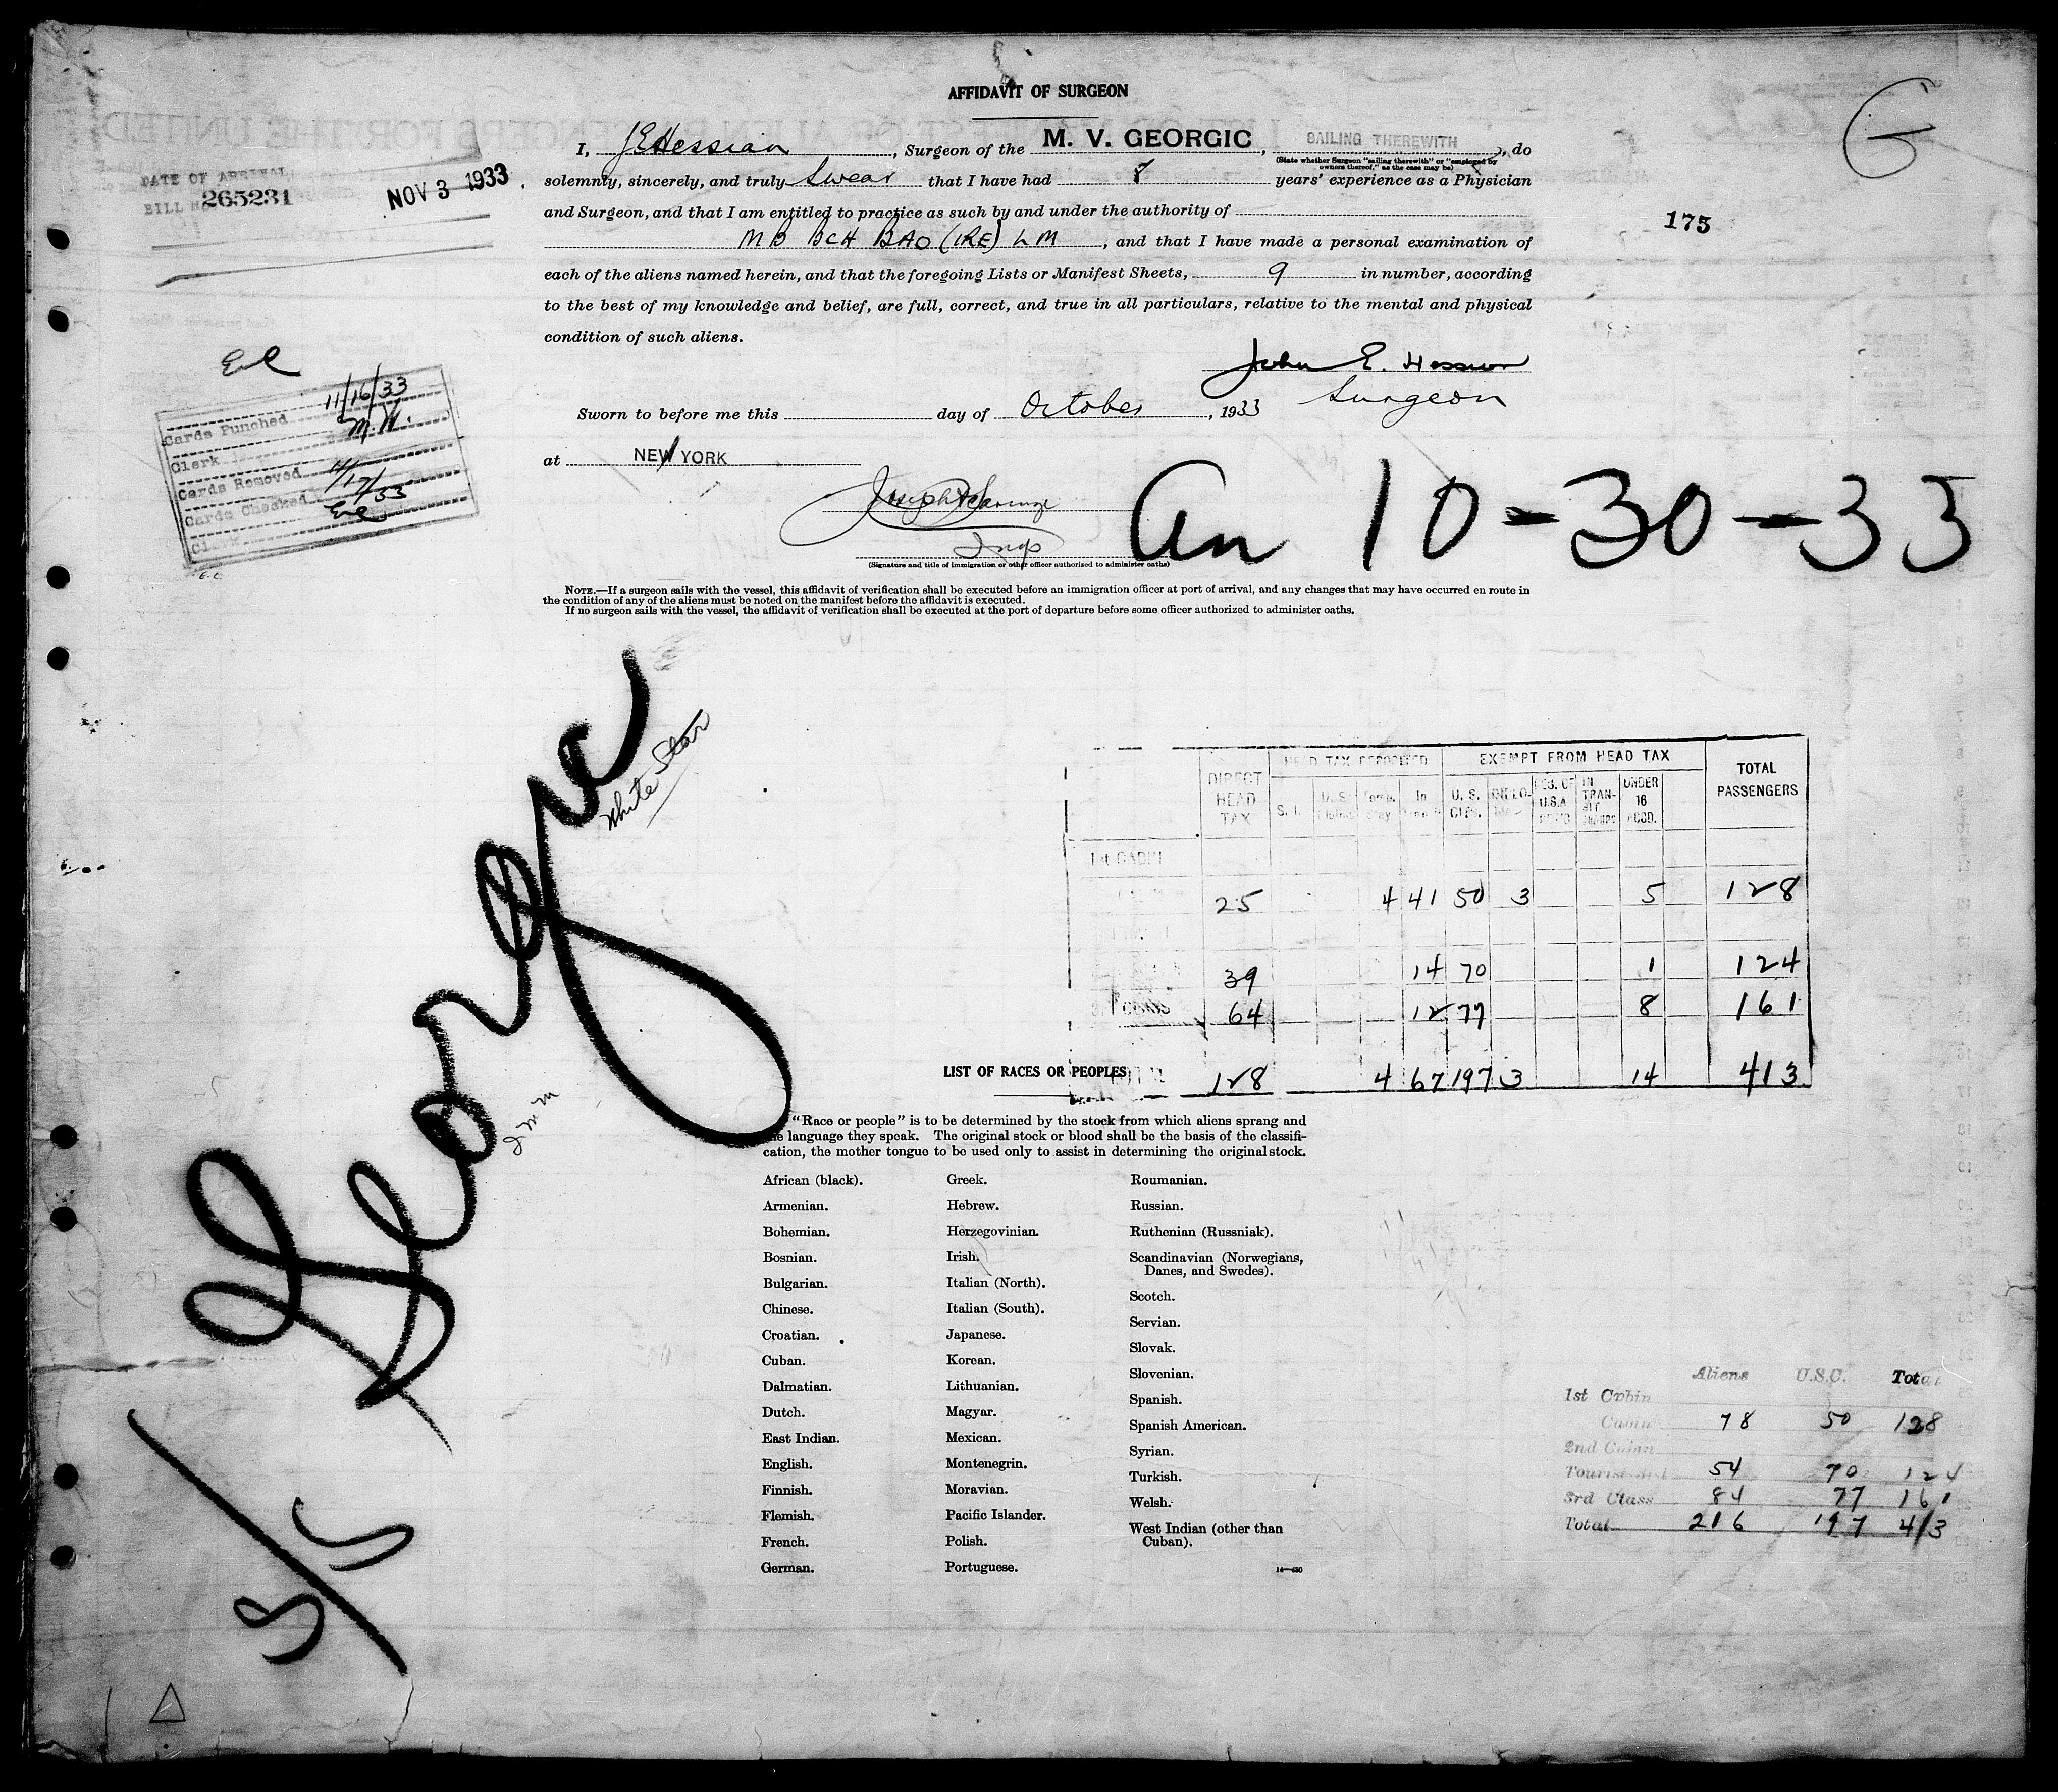 AFFIDAVIT OF SURGEON
I, J E Hessian, Surgeon of the M. V. GEORGIC, SAILING THEREWITH, do
(State whether Surgeon "sailing therewith" or "employed by
owners thereof," as the case may be)
solemnly, sincerely, and truly Swear that I have had 7 years' experience as a Physician
and Surgeon, and that I am entitled to practice as such by and under the authority of
MB BCH BAO (IRE) LM, and that I have made a personal examination of
each of the aliens named herein, and that the foregoing Lists or Manifest Sheets, 9 in number, according
to the best of my knowledge and belief, are full, correct, and true in all particulars, relative to the mental and physical
condition of such aliens.
DATE OF ARRIVAL
BILL No 265231
NOV 3 1933
175
John E. Hession
Surgeon
Sworn to before me this day of October, 1933
at NEW YORK
Cards Punched 11/16/33
Clerk M.W.
Cards Removed
Cards Checked 11/17/33
Clerk
Insp
(Signature and title of immigration or other officer authorized to administer oaths)
An 10-30-33
NOTE.—If a surgeon sails with the vessel, this affidavit of verification shall be executed before an immigration officer at port of arrival, and any changes that may have occurred en route in
the condition of any of the aliens must be noted on the manifest before the affidavit is executed.
If no surgeon sails with the vessel, the affidavit of verification shall be executed at the port of departure before some officer authorized to administer oaths.
S/S Georgic
White Star
DIRECT HEAD TAX
HEAD TAX DEPOSITED
EXEMPT FROM HEAD TAX
TOTAL PASSENGERS
S.I.
U. S. CIZS.
IN TRANSIT
UNDER 16 ACCD.
1st CABIN
25 4 41 50 3 5 128
39 14 70 1 124
64 12 77 8 161
128 4 67 197 3 14 413
LIST OF RACES OR PEOPLES
"Race or people" is to be determined by the stock from which aliens sprang and
the language they speak. The original stock or blood shall be the basis of the classifi-
cation, the mother tongue to be used only to assist in determining the original stock.
African (black).
Armenian.
Bohemian.
Bosnian.
Bulgarian.
Chinese.
Croatian.
Cuban.
Dalmatian.
Dutch.
East Indian.
English.
Finnish.
Flemish.
French.
German.
Greek.
Hebrew.
Herzegovinian.
Irish.
Italian (North).
Italian (South).
Japanese.
Korean.
Lithuanian.
Magyar.
Mexican.
Montenegrin.
Moravian.
Pacific Islander.
Polish.
Portuguese.
Roumanian.
Russian.
Ruthenian (Russniak).
Scandinavian (Norwegians,
Danes, and Swedes).
Scotch.
Servian.
Slovak.
Slovenian.
Spanish.
Spanish American.
Syrian.
Turkish.
Welsh.
West Indian (other than
Cuban).
Aliens U.S.C. Total
1st Cabin
Cabin 78 50 128
2nd Cabin
Tourist 54 70 124
3rd Class 84 77 161
Total 216 197 413